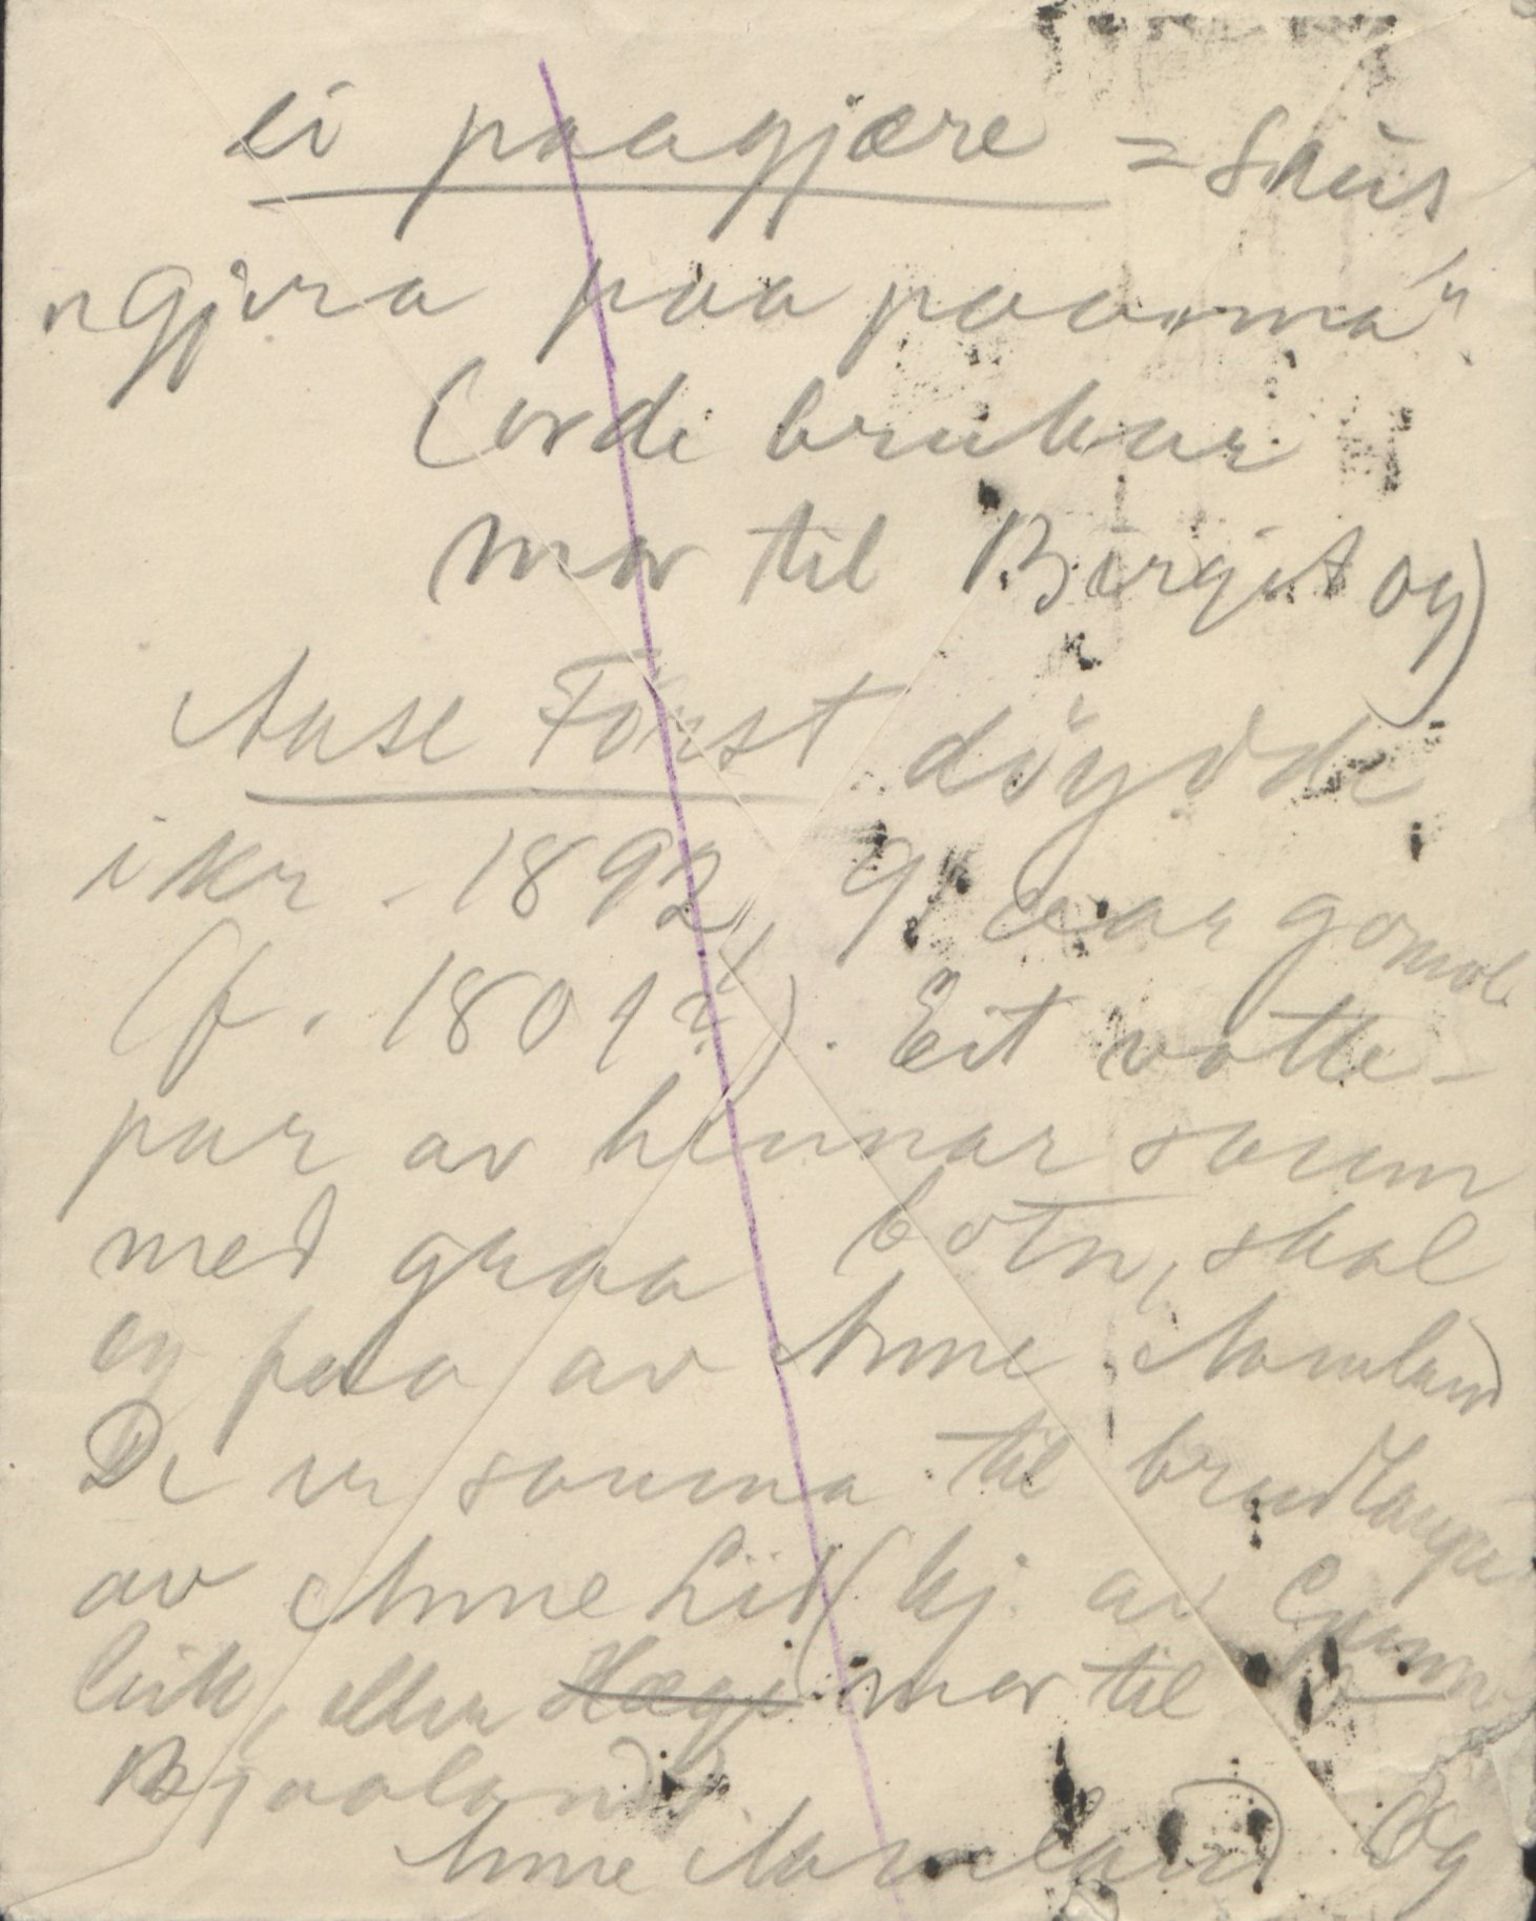 ei paagjære = snus
"Gjera paa paarma"
(ordi brukar
mor til Bergit og)
Aase Först döydde
i kr. 1892, 91 aar gomol
(f. 1801?). Eit votte-
par av hennar saum
med graa botn, skal
eg faa av Anne Aamland
De er sauma til brudlaupe
av Anne Lid (hj. av Gunn
leik, eller mor til
Bjaaland.
Anne Aamland Og